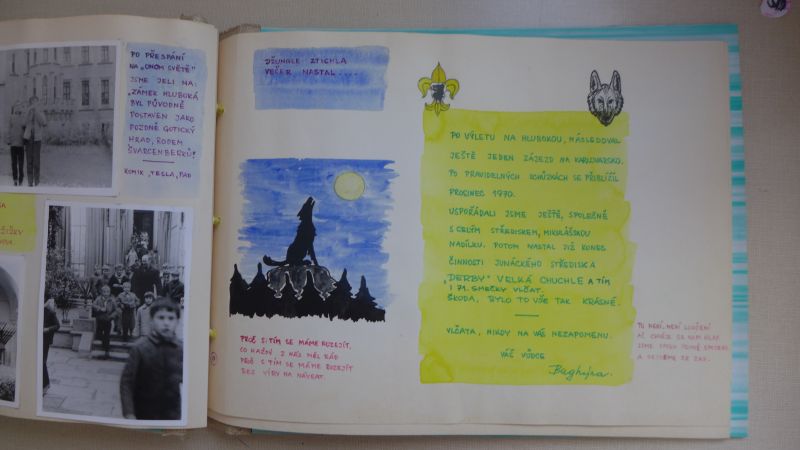 PO PŘESPÁNÍ
NA „ONOM SVĚTĚ"
JSME JELI NA:
„ZÁMEK HLUBOKÁ
BYL PŮVODNĚ
POSTAVEN JAKO
POZDNĚ GOTICKÝ
HRAD, RODEM
ŠVARCENBERKŮ!
KOMIK, TESLA, PAĎ
DŽUNGLE ZTICHLA
VEČER NASTAL....
PROČ S TÍM SE MÁME ROZEJÍT,
CO KAŽDÝ Z NÁS MĚL RÁD
PROČ S TÍM SE MÁME ROZEJÍT
BEZ VÍRY NA NÁVRAT.
PO VÝLETU NA HLUBOKOU, NÁSLEDOVAL
JEŠTĚ JEDEN ZÁJEZD NA KARLOVARSKO.
PO PRAVIDELNÝCH SCHŮZKÁCH SE PŘIBLÍŽIL
PROSINEC 1970.
USPOŘÁDALI JSME JEŠTĚ, SPOLEČNĚ
S CELÝM STŘEDISKEM, MIKULÁŠSKOU
NADÍLKU. POTOM NASTAL JIŽ KONEC
ČINNOSTI JUNÁCKÉHO STŘEDISKA
„DERBY" VELKÁ CHUCHLE A TÍM
I 71. SMEČKY VLČAT.
ŠKODA, BYLO TO VŠE TAK KRÁSNÉ.
VLČATA, NIKDY NA VÁS NEZAPOMENU.
VÁŠ VŮDCE
Baghýra.
TO NENÍ, NENÍ LOUČENÍ